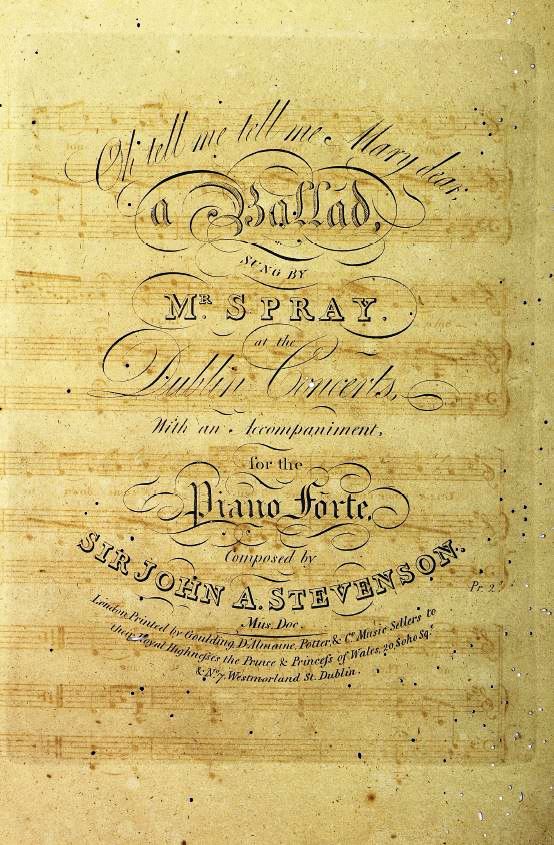 Oh tell me tell me Mary dear,
a Ballad,
SUNG BY
Mr. SPRAY.
at the
Dublin Concerts,
With an Accompaniment,
for the
Piano Forte,
Composed by
SIR JOHN A. STEVENSON.
Mus. Doc.
Pr. 2s.
London, Printed by Goulding, D'Almaine, Potter, & Co. Music Sellers to
their Royal Highneſses the Prince & Princeſs of Wales, 20, Soho Sq.
& No. 7, Westmorland St. Dublin.